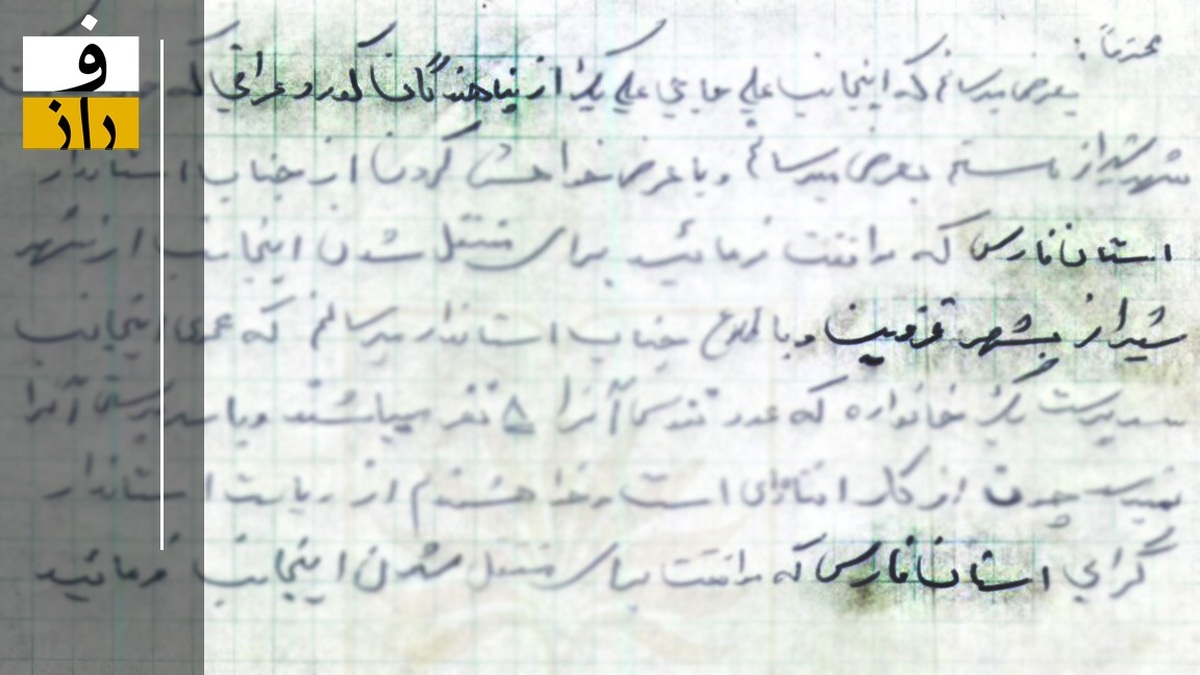 محترماً :
بعرض میرسانم که اینجانب علی حاجی علی یک از پناهندگان کورد عراقی که
شهر شیراز بعرض میرسانم و با عرض خواهش کردن از جناب استاندار
استان فارس که موافقت فرمائید برای منتقل شدن اینجانب از شهر
شیراز بشهر قزوین و با اطلاع جناب استاندار میرسانم که عموی اینجانب
سرپرست یک خانواده که عدد آنرا ۵ نفر میباشند و با سرپرستی آنرا
از کار افتاده‌ای است و خواهشمندم از ریاست استاندار
گرامی استان فارس که موافقت برای منتقل شدن اینجانب فرمائید
فراز